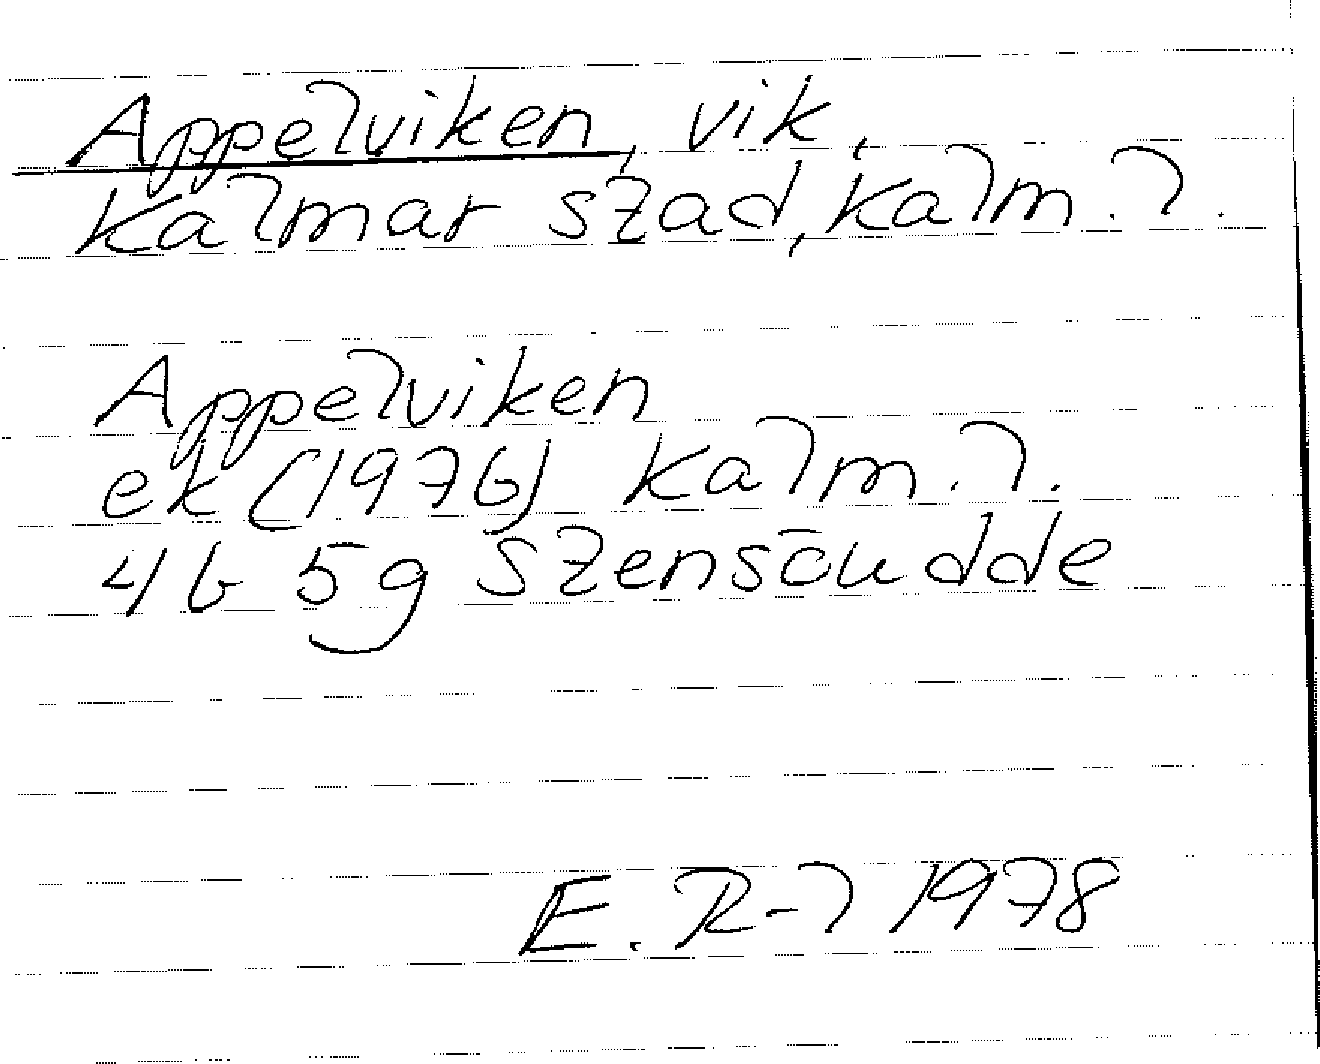 Appelviken, vik,
Kalmar stad, Kalm. l.
Appelviken
ek (1976) Kalm. l.
4 G 5 g Stensöudde
E. R-l 1978